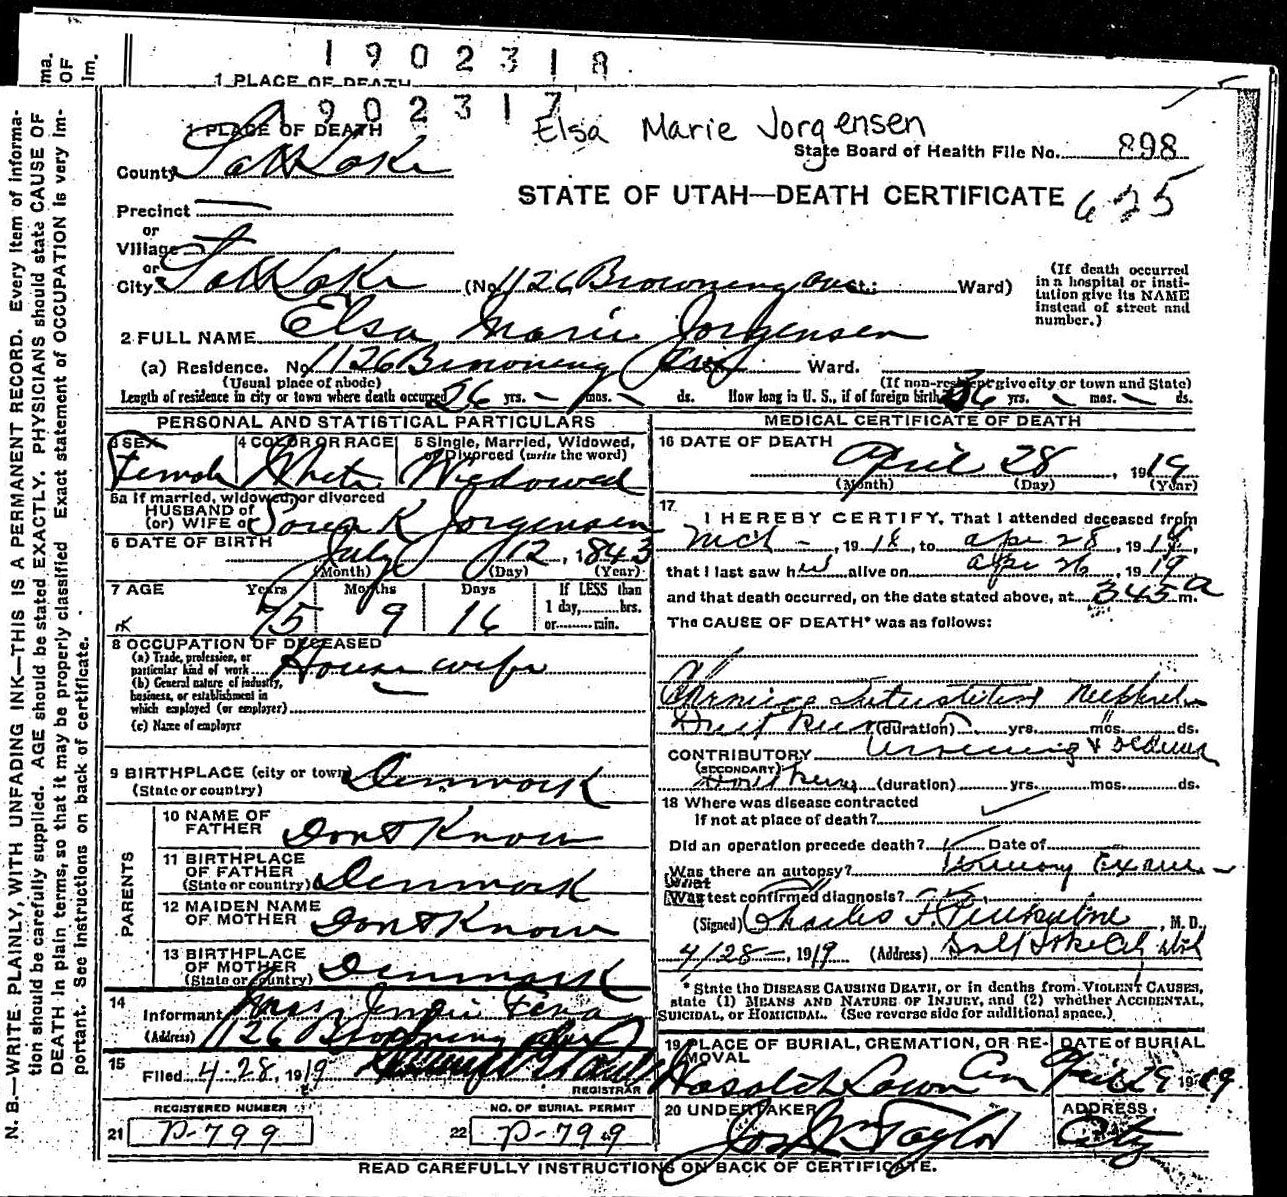 1902318
1 PLACE OF DEATH
1902317
Elsa Marie Jorgensen
1 PLACE OF DEATH
State Board of Health File No. 898
County Salt Lake
STATE OF UTAH—DEATH CERTIFICATE 625
Precinct
or
Village
or
City Salt Lake (No. 1126 Browning Ave St.; Ward)
(If death occurred in a hospital or institution give its NAME instead of street and number.)
2 FULL NAME Elsa Marie Jorgensen
(a) Residence. No. 1126 Browning Ave Ward.
(Usual place of abode) (If non-resident give city or town and State)
Length of residence in city or town where death occurred yrs. — mos. — ds. How long in U. S., if of foreign birth? 36 yrs. — mos. — ds.
PERSONAL AND STATISTICAL PARTICULARS
3 SEX Female
4 COLOR OR RACE White
5 Single, Married, Widowed, or Divorced (write the word) Widowed
5a If married, widowed, or divorced
HUSBAND of
(or) WIFE of Soren K Jorgensen
6 DATE OF BIRTH July 12, 1843
(Month) (Day) (Year)
7 AGE Years 75 Months 9 Days 16 If LESS than 1 day, hrs. or min.
8 OCCUPATION OF DECEASED
(a) Trade, profession, or particular kind of work Housewife
(b) General nature of industry, business, or establishment in which employed (or employer)
(c) Name of employer
9 BIRTHPLACE (city or town) Denmark
(State or country)
PARENTS
10 NAME OF FATHER Dont Know
11 BIRTHPLACE OF FATHER (State or country) Denmark
12 MAIDEN NAME OF MOTHER Dont Know
13 BIRTHPLACE OF MOTHER (State or country) Denmark
14
Informant Mrs
(Address) 1126 Browning Ave
15
Filed 4-28, 1919
REGISTRAR
REGISTERED NUMBER
21 P-799
NO. OF BURIAL PERMIT
22 P-799
MEDICAL CERTIFICATE OF DEATH
16 DATE OF DEATH
April 28, 1919
(Month) (Day) (Year)
17
I HEREBY CERTIFY, That I attended deceased from
Mch —, 1918, to Apr 28, 1919,
that I last saw her alive on Apr 26, 1919
and that death occurred, on the date stated above, at 345 a m.
The CAUSE OF DEATH* was as follows:
Chronic Interstitial Nephritis
Dont Know (duration) yrs. mos. ds.
CONTRIBUTORY
(SECONDARY)
Dont Know (duration) yrs. mos. ds.
18 Where was disease contracted
if not at place of death?
Did an operation precede death? Date of
Was there an autopsy?
What
Was test confirmed diagnosis?
(Signed) Charles F. , M. D.
4/28—, 1919 (Address) Salt Lake City Utah
*State the DISEASE CAUSING DEATH, or in deaths from VIOLENT CAUSES,
state (1) MEANS AND NATURE OF INJURY, and (2) whether ACCIDENTAL,
SUICIDAL, or HOMICIDAL. (See reverse side for additional space.)
19 PLACE OF BURIAL, CREMATION, OR REMOVAL
Wasatch Lawn Cem
DATE of BURIAL
April 29 1919.
20 UNDERTAKER
Jos Wm Taylor
ADDRESS
City
READ CAREFULLY INSTRUCTIONS ON BACK OF CERTIFICATE.
N. B.—WRITE PLAINLY, WITH UNFADING INK—THIS IS A PERMANENT RECORD. Every item of Information should be carefully supplied. AGE should be stated EXACTLY. PHYSICIANS should state CAUSE OF DEATH in plain terms, so that it may be properly classified Exact statement of OCCUPATION is very important. See instructions on back of certificate.